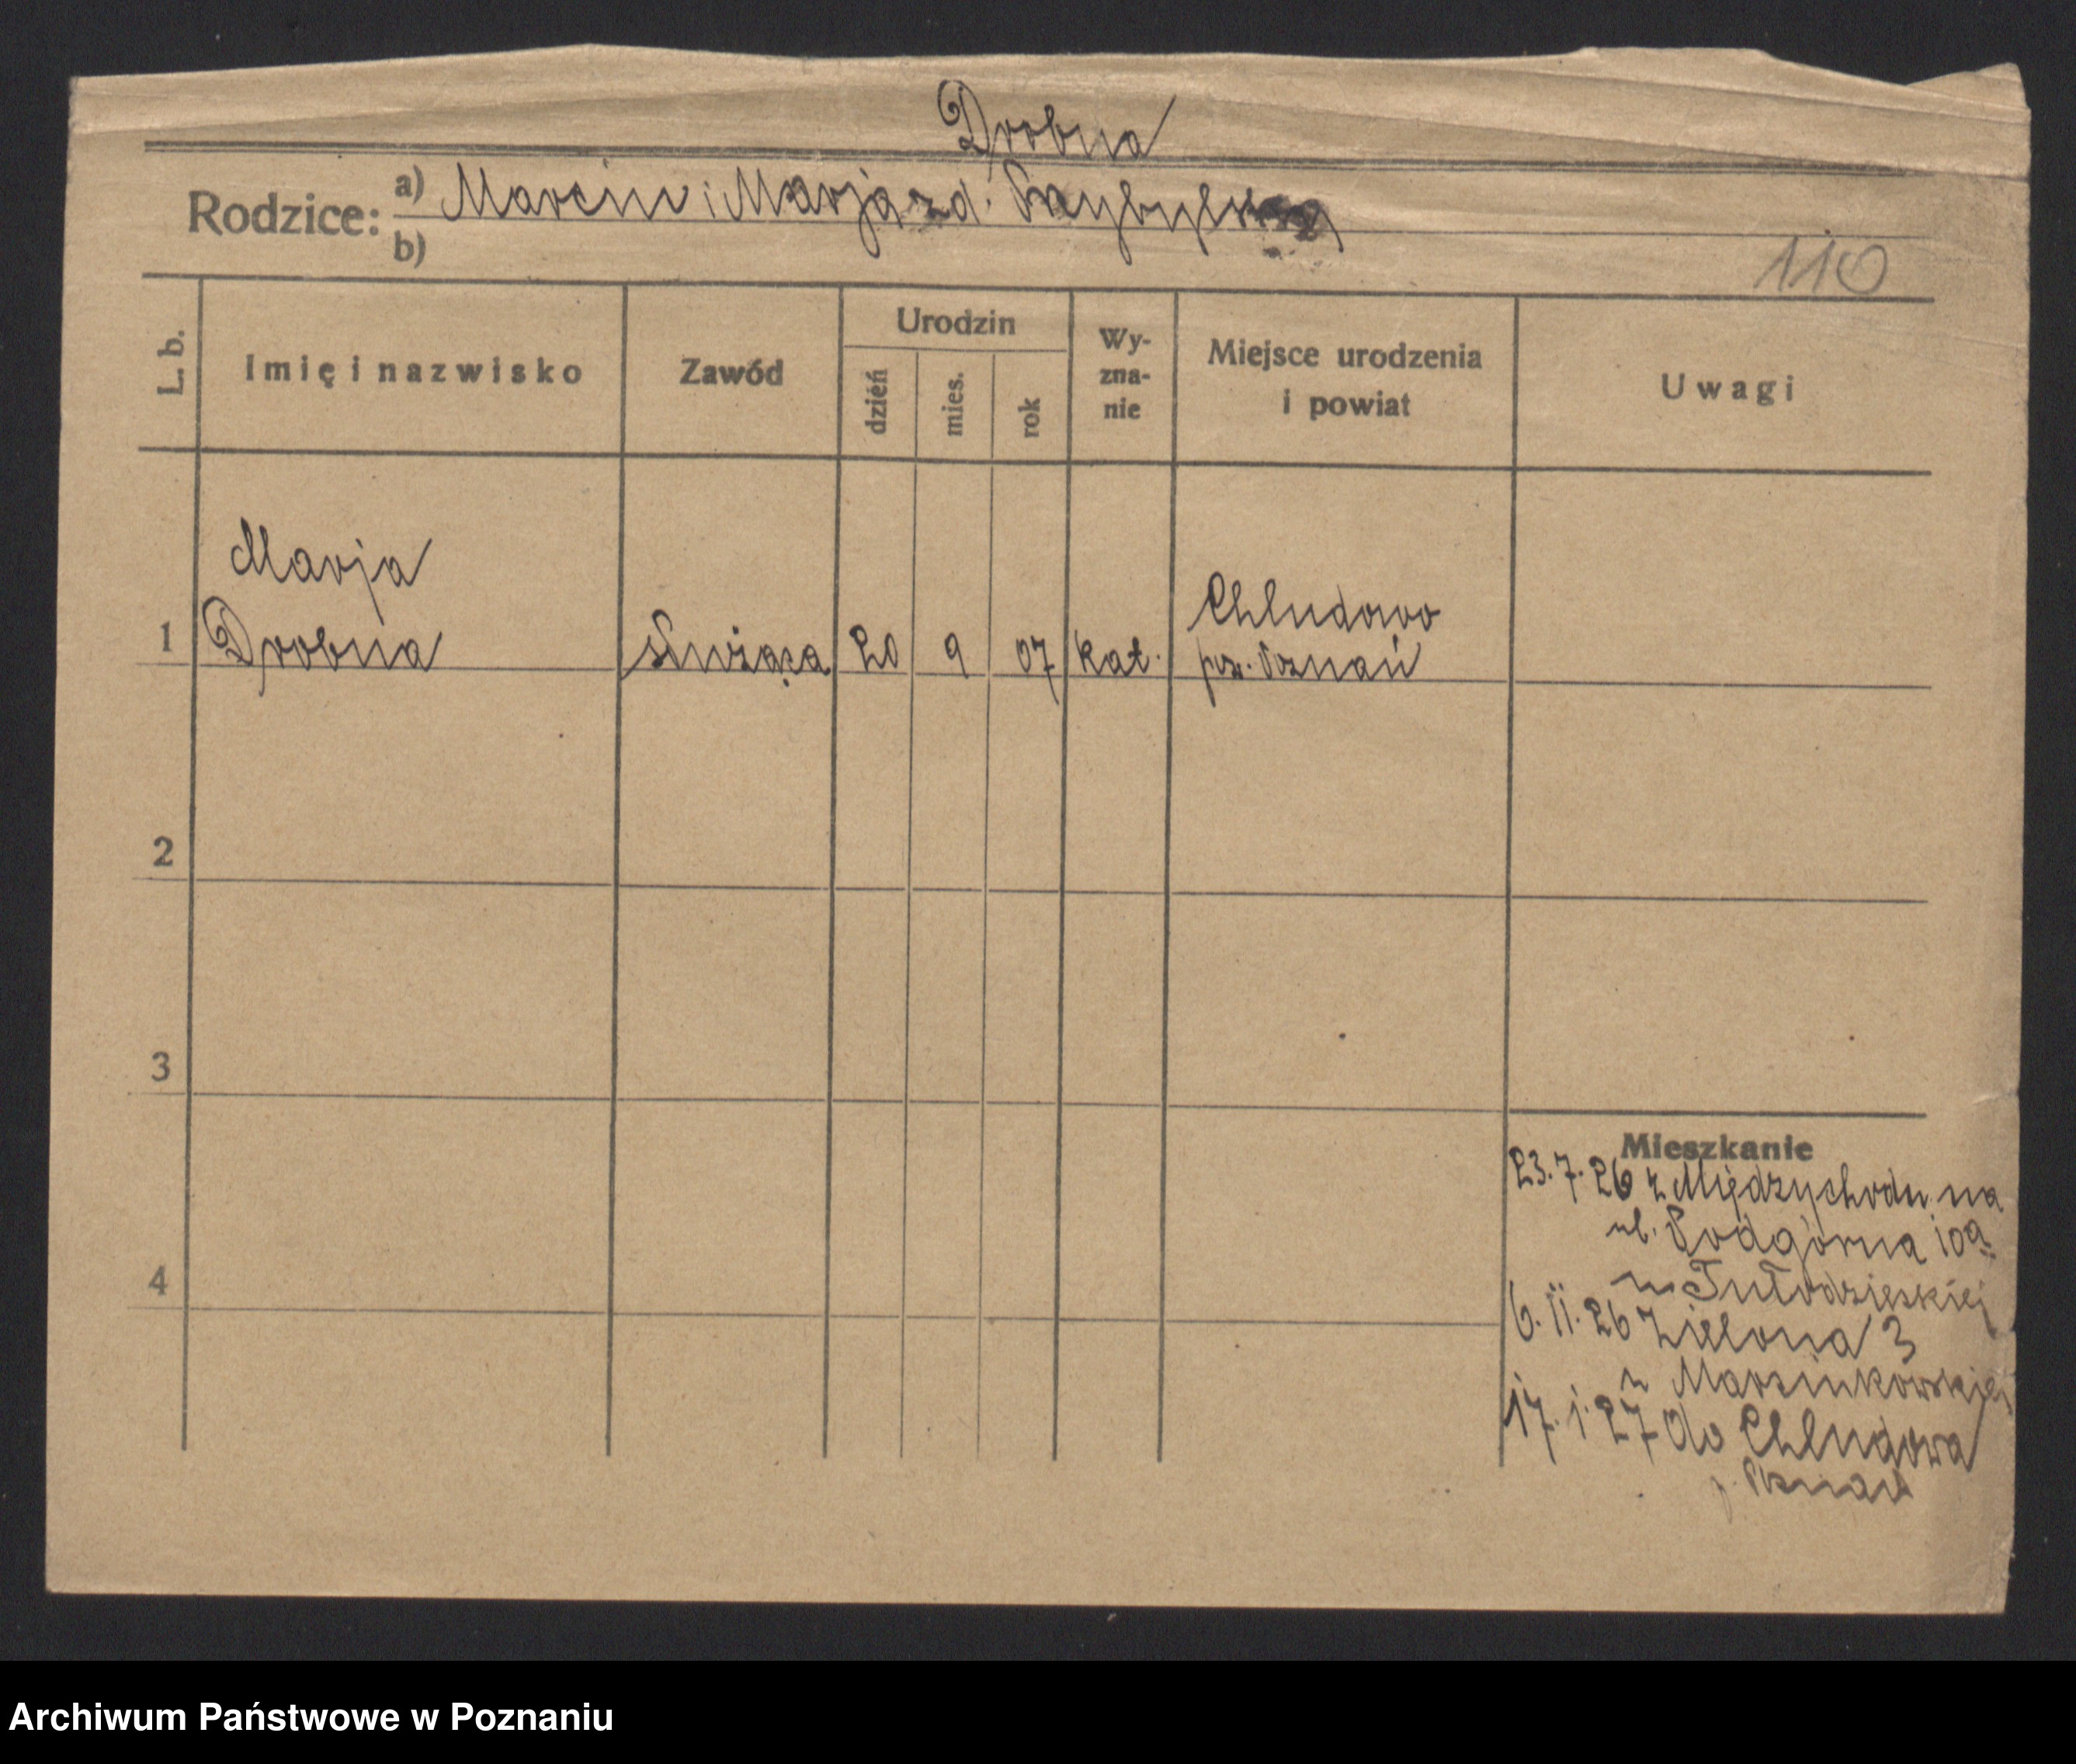 Drobna
Rodzice: a) Marcin i Marja zd. Przybylska
b)
110
L. b.
Imię i nazwisko
Zawód
Urodzin
dzień
mies.
rok
Wy-
zna-
nie
Miejsce urodzenia
i powiat
Uwagi
Marja
1 Drobna służąca 20 9 07 kat.
Chludowo
pow. Poznań
2
3
4
Mieszkanie
23.7.26 z Międzychodu na
ul. Podgórna 10a
u
6.11.26 Zielona 3
u Marcinkowskiej
17.1.27 do Chludowa
p. Poznań
Archiwum Państwowe w Poznaniu